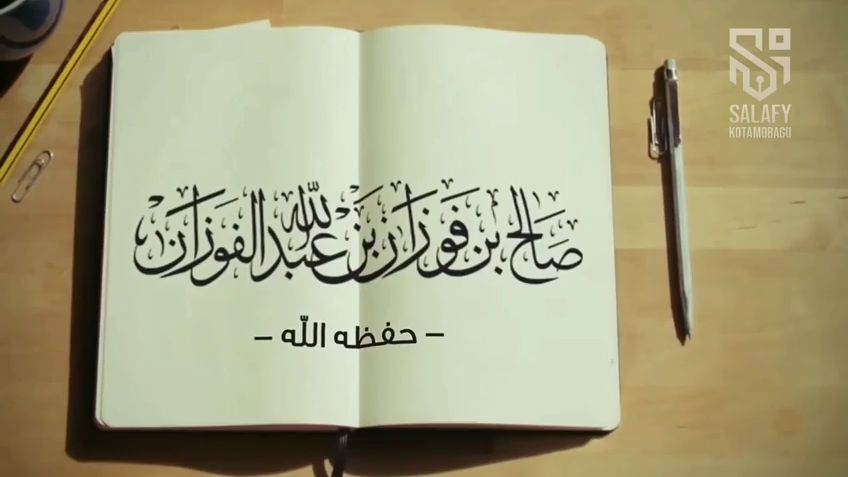 SALAFY
KOTAMOBAGU
صَالح بن فَوزَان بَن عَبد اللّٰه الفَوزَان
– حفظه اللّه –